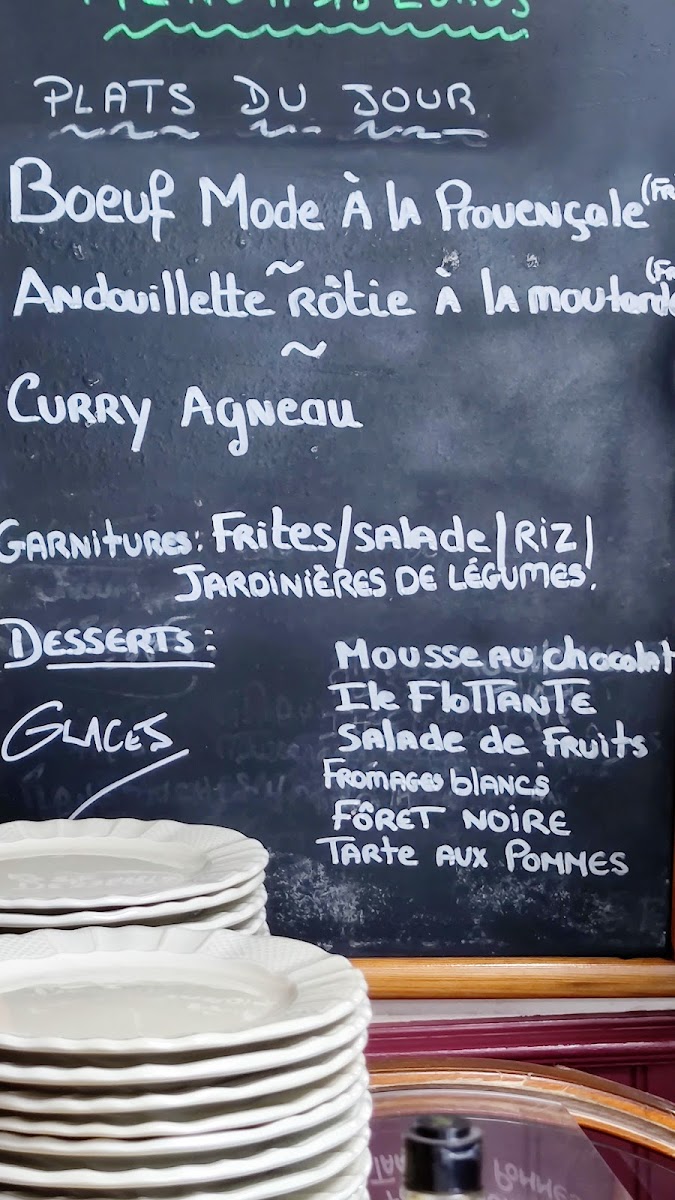 PLATS DU JOUR
Boeuf Mode À la Provençale (FR
Andouillette Rôtie À la moutarde (FR
Curry Agneau
Garnitures: Frites/Salade/Riz/
Jardinières de légumes.
Desserts:
Mousse au chocolat
Ile Flottante
Glaces
Salade de Fruits
Fromages blancs
Fôret noire
Tarte aux Pommes